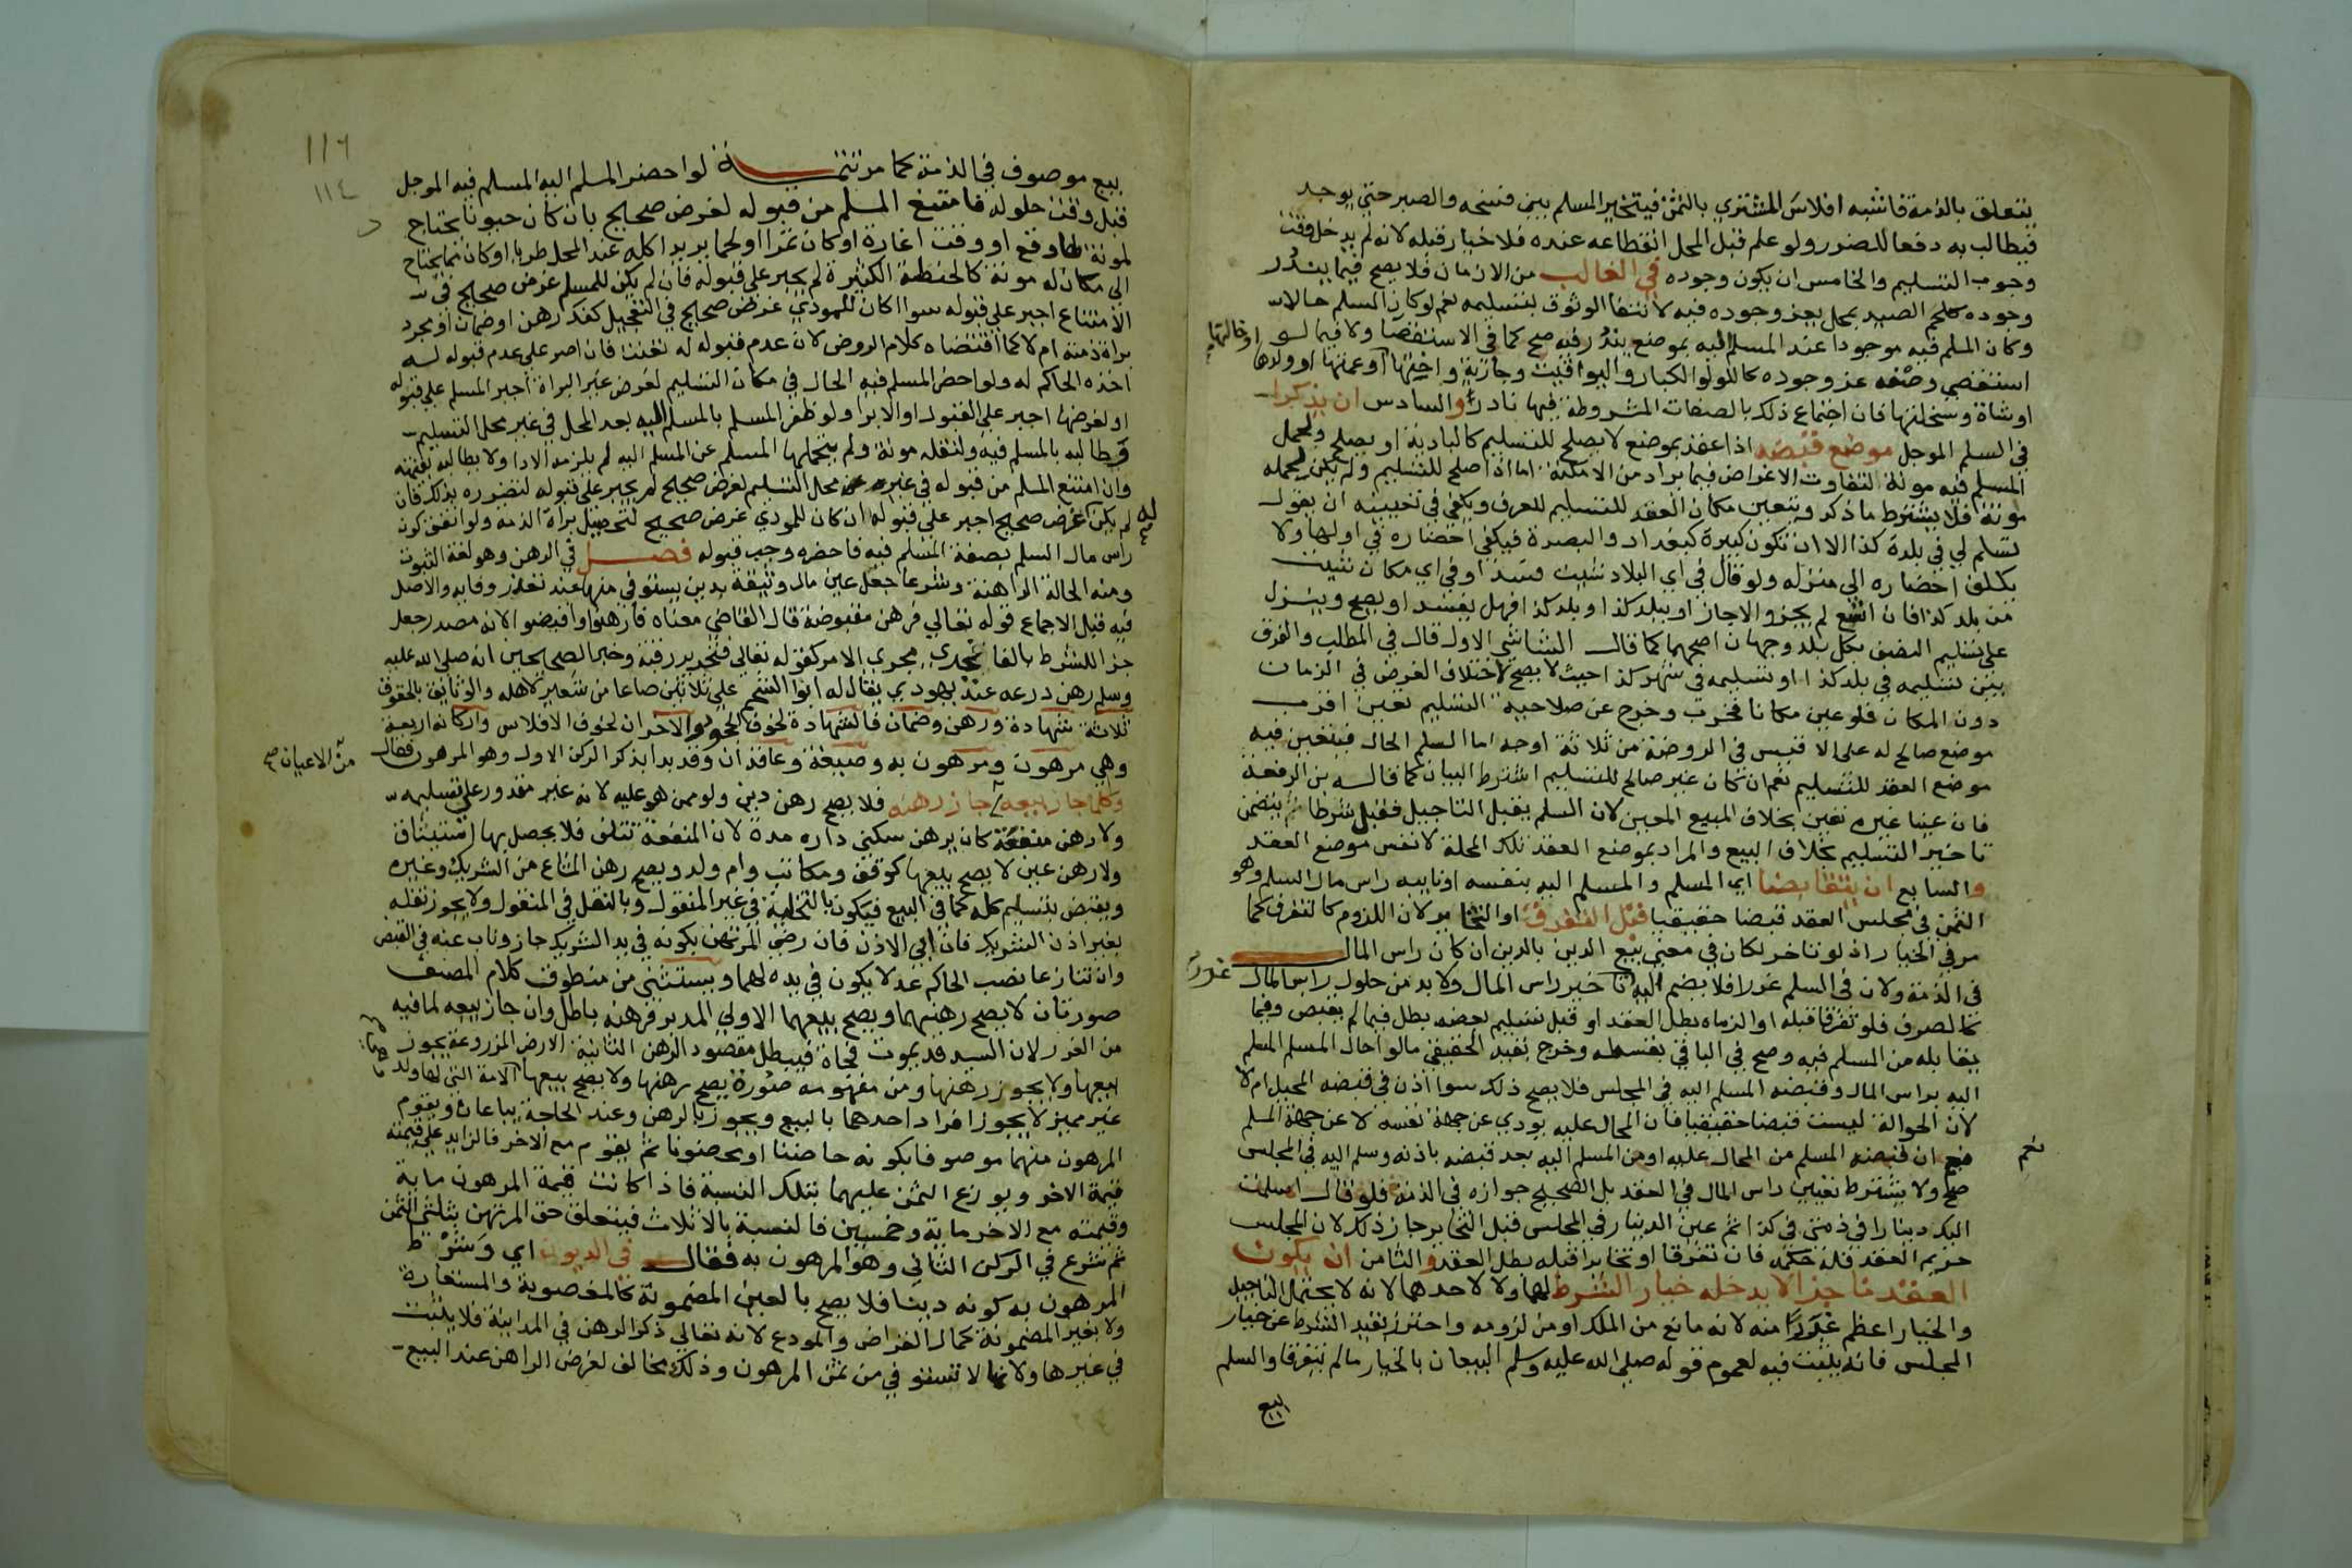 يتعلق بالذمة فاشبه افلاس المشتري بالثمن فيتخير المسلم بين فسخه والصبر حتى يوجد
فيطالب به دفعا للضرر ولو علم قبل المحل انقطاعه عنده فلا خيار قبله لانه لم يدخل وقت
وجوب التسليم والخامس ان يكون وجوده في الغالب من الازمان فلا يصح فيما يندر
وجوده كلحم الصيد بمحل يعز وجوده فيه لانتفا الوثوق بتسليمه نعم لو كان المسلم حالا
وكان المسلم فيه موجودا عند المسلم اليه بموضع يندر فيه صح كما في الاستقصا ولا فيما لو
استقصي وصفه عز وجوده كاللولو الكبار واليواقيت وجارية واختها او عمتها او ولدها
او خالتها
او شاة وسخلتها فان اجتماع ذلك بالصفات المشروطة فيها نادر والسادس ان يذكرا
في السلم الموجل موضع قبضه اذا عقد بموضع لا يصلح للتسليم كالبادية او يصلح ولحمل
المسلم فيه مونة لتفاوت الاغراض فيما يراد من الامكنة اما اذا صلح للتسليم ولم يكن لحمله
مونة فلا يشترط ما ذكر ويتعين مكان العقد للتسليم للعرف ويكفي في تعيينه ان يقول
تسلم لي في بلدة كذا الا ان تكون كبيرة كبغداد والبصرة فيكفي احضاره في اولها ولا
يكلف احضاره الي منزله ولو قال في اي البلاد شيت فسد او في اي مكان شيت
من بلد كذا فان اتسع لم يجز والا جاز او ببلد كذا او بلد كذا فهل يفسد او يصح وينزل
على تسليم النصف بكل بلد وجهان اصحهما كما قال الشاشي الاول قال في المطلب والفرق
بين تسليمه في بلد كذا او تسليمه في شهر كذا حيث لا يصح لاختلاف الغرض في الزمان
دون المكان فلو عين مكانا فخرب وخرج عن صلاحية التسليم تعين اقرب
موضع صالح له على الاقيس في الروضة من ثلاثة اوجه اما السلم الحال فيتعين فيه
موضع العقد للتسليم نعم ان كان غير صالح للتسليم اشترط البيان كما قاله بن الرفعة
فان عينا غيره تعين بخلاف المبيع المعين لان السلم يقبل التاجيل فقبل شرطا يتضمن
تاخير التسليم بخلاف البيع والمراد بموضع العقد تلك المحلة لا نفس موضع العقد
والسابع ان يتقابضا اي المسلم والمسلم اليه بنفسه او نايبه راس مال السلم وهو
الثمن في مجلس العقد قبضا حقيقيا قبل التفرق او التخاير لان اللزوم كالتفرق كما
مر في الخيار اذ لو تاخر لكان في معنى بيع الدين بالدين ان كان راس المال
في الذمة ولان في السلم غررا فلا يضم اليه تاخير راس المال ولا بد من حلول راس المال
غرر
كالصرف فلو تفرقا قبله او الزماه بطل العقد او قبل تسليم بعضه بطل فيما لم يقبض وفيما
يقابله من المسلم فيه وصح في الباقي بقسطه وخرج بقيد الحقيقي ما لو احال المسلم المسلم
اليه براس المال وقبضه المسلم اليه في المجلس فلا يصح ذلك سوا اذن في قبضه المحيل ام لا
لان الحوالة ليست قبضا حقيقيا فان المحال عليه يودي عن جهة نفسه لا عن جهة المسلم
نعم
ان قبضه المسلم من المحال عليه او من المسلم اليه بعد قبضه باذنه وسلم اليه في المجلس
صح ولا يشترط تعيين راس المال في العقد بل الصحيح جوازه في الذمة فلو قال اسلمت
اليك دينارا في ذمتي في كذا ثم عين الدينار في المجلس قبل التخاير جاز ذلك لان المجلس
حريم العقد فله حكمه فان تفرقا او تخايرا قبله بطل العقد والثامن ان يكون
العقد ناجزا لا يدخله خيار الشرط لهما ولا لاحدهما لانه لا يحتمل التاجيل
والخيار اعظم غررا منه لانه مانع من الملك او من لزومه واحترز بقيد الشرط عن خيار
المجلس فانه يثبت فيه لعموم قوله صلى الله عليه وسلم البيعان بالخيار ما لم يتفرقا والسلم
بيع
١١٦
١١٤
بيع موصوف في الذمة كما مر تتمة لو احضر المسلم اليه المسلم فيه الموجل
قبل وقت حلوله فامتنع المسلم من قبوله لغرض صحيح بان كان حيوانا يحتاج
لمونة لها وقع او وقت اغارة او كان تمرا او لحما يريد اكله عند المحل طريا او كان مما يحتاج
الي مكان له مونة كالحنطة الكثيرة لم يجبر على قبوله فان لم يكن للمسلم غرض صحيح في
الامتناع اجبر على قبوله سوا اكان للمودي غرض صحيح في التعجيل كفك رهن او ضمان او مجرد
براة ذمته ام لا كما اقتضاه كلام الروض لان عدم قبوله له تعنت فان اصر على عدم قبوله له
اخذه الحاكم له ولو احضر المسلم فيه الحال في مكان التسليم لغرض غير البراة اجبر المسلم على قبوله
او لغرضها اجبر على القبول او الابرا ولو ظفر المسلم بالمسلم اليه بعد المحل في غير محل التسليم
وطالبه بالمسلم فيه ولنقله مونة ولم يتحملها المسلم عن المسلم اليه لم يلزمه الادا ولا يطالبه بقيمته
وان امتنع المسلم من قبوله في غير محل التسليم لغرض صحيح لم يجبر على قبوله لتضرره بذلك فان
لم يكن له غرض صحيح اجبر على قبوله ان كان للمودي غرض صحيح لتحصيل براة الذمة ولو اتفق كون
راس مال السلم بصفة المسلم فيه فاحضره وجب قبوله فصل في الرهن وهو لغة الثبوت
ومنه الحالة الراهنة وشرعا جعل عين مال وثيقة بدين يستوفى منها عند تعذر وفايه والاصل
فيه قبل الاجماع قوله تعالي فرهن مقبوضة قال القاضي معناه فارهنوا واقبضوا لانه مصدر جعل
جزا للشرط بالفا فجرى مجرى الامر كقوله تعالى فتحرير رقبة وخبر الصحيحين انه صلى الله عليه
وسلم رهن درعه عند يهودي يقال له ابو الشحم على ثلاثين صاعا من شعير لاهله والوثايق بالحقوق
ثلاثة شهادة ورهن وضمان فالشهادة لخوف الجحود والاخران لخوف الافلاس واركانه اربعة
وهي مرهون ومرهون به وصيغة وعاقدان وقد بدا بذكر الركن الاول وهو المرهون فقال
وكلما جاز بيعه جاز رهنه فلا يصح رهن دين ولو ممن هو عليه لانه غير مقدور على تسليمه
من الاعيان صح
ولا رهن منفعة كان يرهن سكنى داره مدة لان المنفعة تتلف فلا يحصل بها استيثاق
ولا رهن عين لا يصح بيعها كوقف ومكاتب وام ولد ويصح رهن المشاع من الشريك وغيره
ويقبض بتسليم كله كما في البيع فيكون بالتخلية في غير المنقول وبالنقل في المنقول ولا يجوز نقله
بغير اذن الشريك فان ابي الاذن فان رضي المرتهن بكونه في يد الشريك جاز وناب عنه في القبض
وان تنازعا نصب الحاكم عدلا يكون في يده لهما ويستثنى من منطوق كلام المصنف
صورتان لا يصح رهنهما ويصح بيعهما الاولي المدبر فرهنه باطل وان جاز بيعه لما فيه
من الغرر لان السيد قد يموت فجاة فيبطل مقصود الرهن الثانية الارض المزروعة يجوز
بيعها ولا يجوز رهنها ومن مفهومه صورة يصح رهنها ولا يصح بيعها الامة التي لها ولد
غير مميز لا يجوز افراد احدهما بالبيع ويجوز بالرهن وعند الحاجة يباعان ويقوم
المرهون منهما موصوفا بكونه حاضنا او محضونا ثم يقوم مع الاخر فالزايد على قيمته
قيمة الاخر ويوزع الثمن عليهما بتلك النسبة فاذا كانت قيمة المرهون ماية
وقيمته مع الاخر ماية وخمسين فالنسبة بالاثلاث فيتعلق حق المرتهن بثلثي الثمن
ثم شرع في الركن الثاني وهو المرهون به فقال في الديون اي وشرط
المرهون به كونه دينا فلا يصح بالعين المضمونة كالمغصوبة والمستعارة
ولا بغير المضمونة كمال القراض والمودع لانه تعالي ذكر الرهن في المداينة فلا يثبت
في غيرها ولانها لا تستوفى من ثمن المرهون وذلك مخالف لغرض الراهن عند البيع